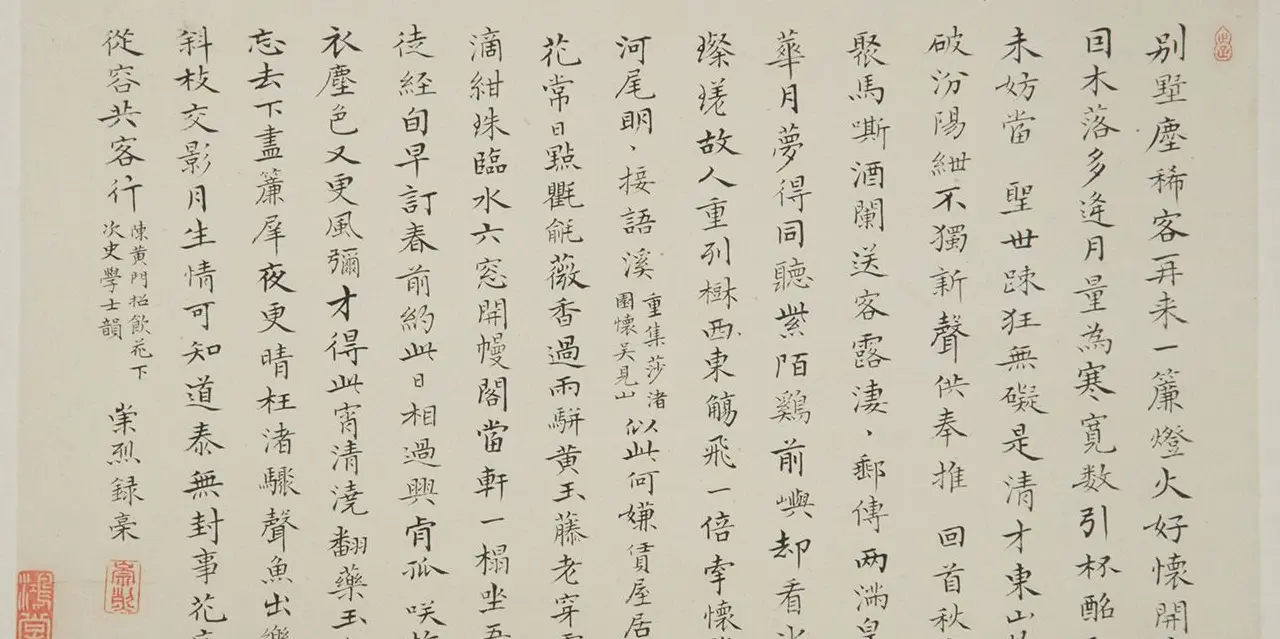 别墅塵稀客再来一簾燈火好懷開
因木落多逢月量為寒寬数引杯酩
未妨當 聖世踈狂無礙是清才東山
破汾陽紲不獨新聲供奉推 回首秋
聚馬嘶酒闌送客露淒、郵傳两满皇
華月夢得同聽紫陌鷄前嶼却看
璨瑳故人重列樹西東觴飛一倍牽懷
河尾明、接語溪
重集莎渚
園懷吴見山
似此何嫌賃屋居
花常日點氍毹薇香過雨駢黄玉藤老穿
滴紺珠臨水六窓開幔閣當軒一榻坐吾
徒経旬早訂春前約此日相過興肯孤咲
衣塵色又更風彌才得此宵清澆翻藥玉
忘去下盡簾犀夜更晴枉渚驟聲魚出樂
斜枝交影月生情可知道泰無封事花
從容共客行
陳黄門招飲花下
次史學士韻
崇烈録稾